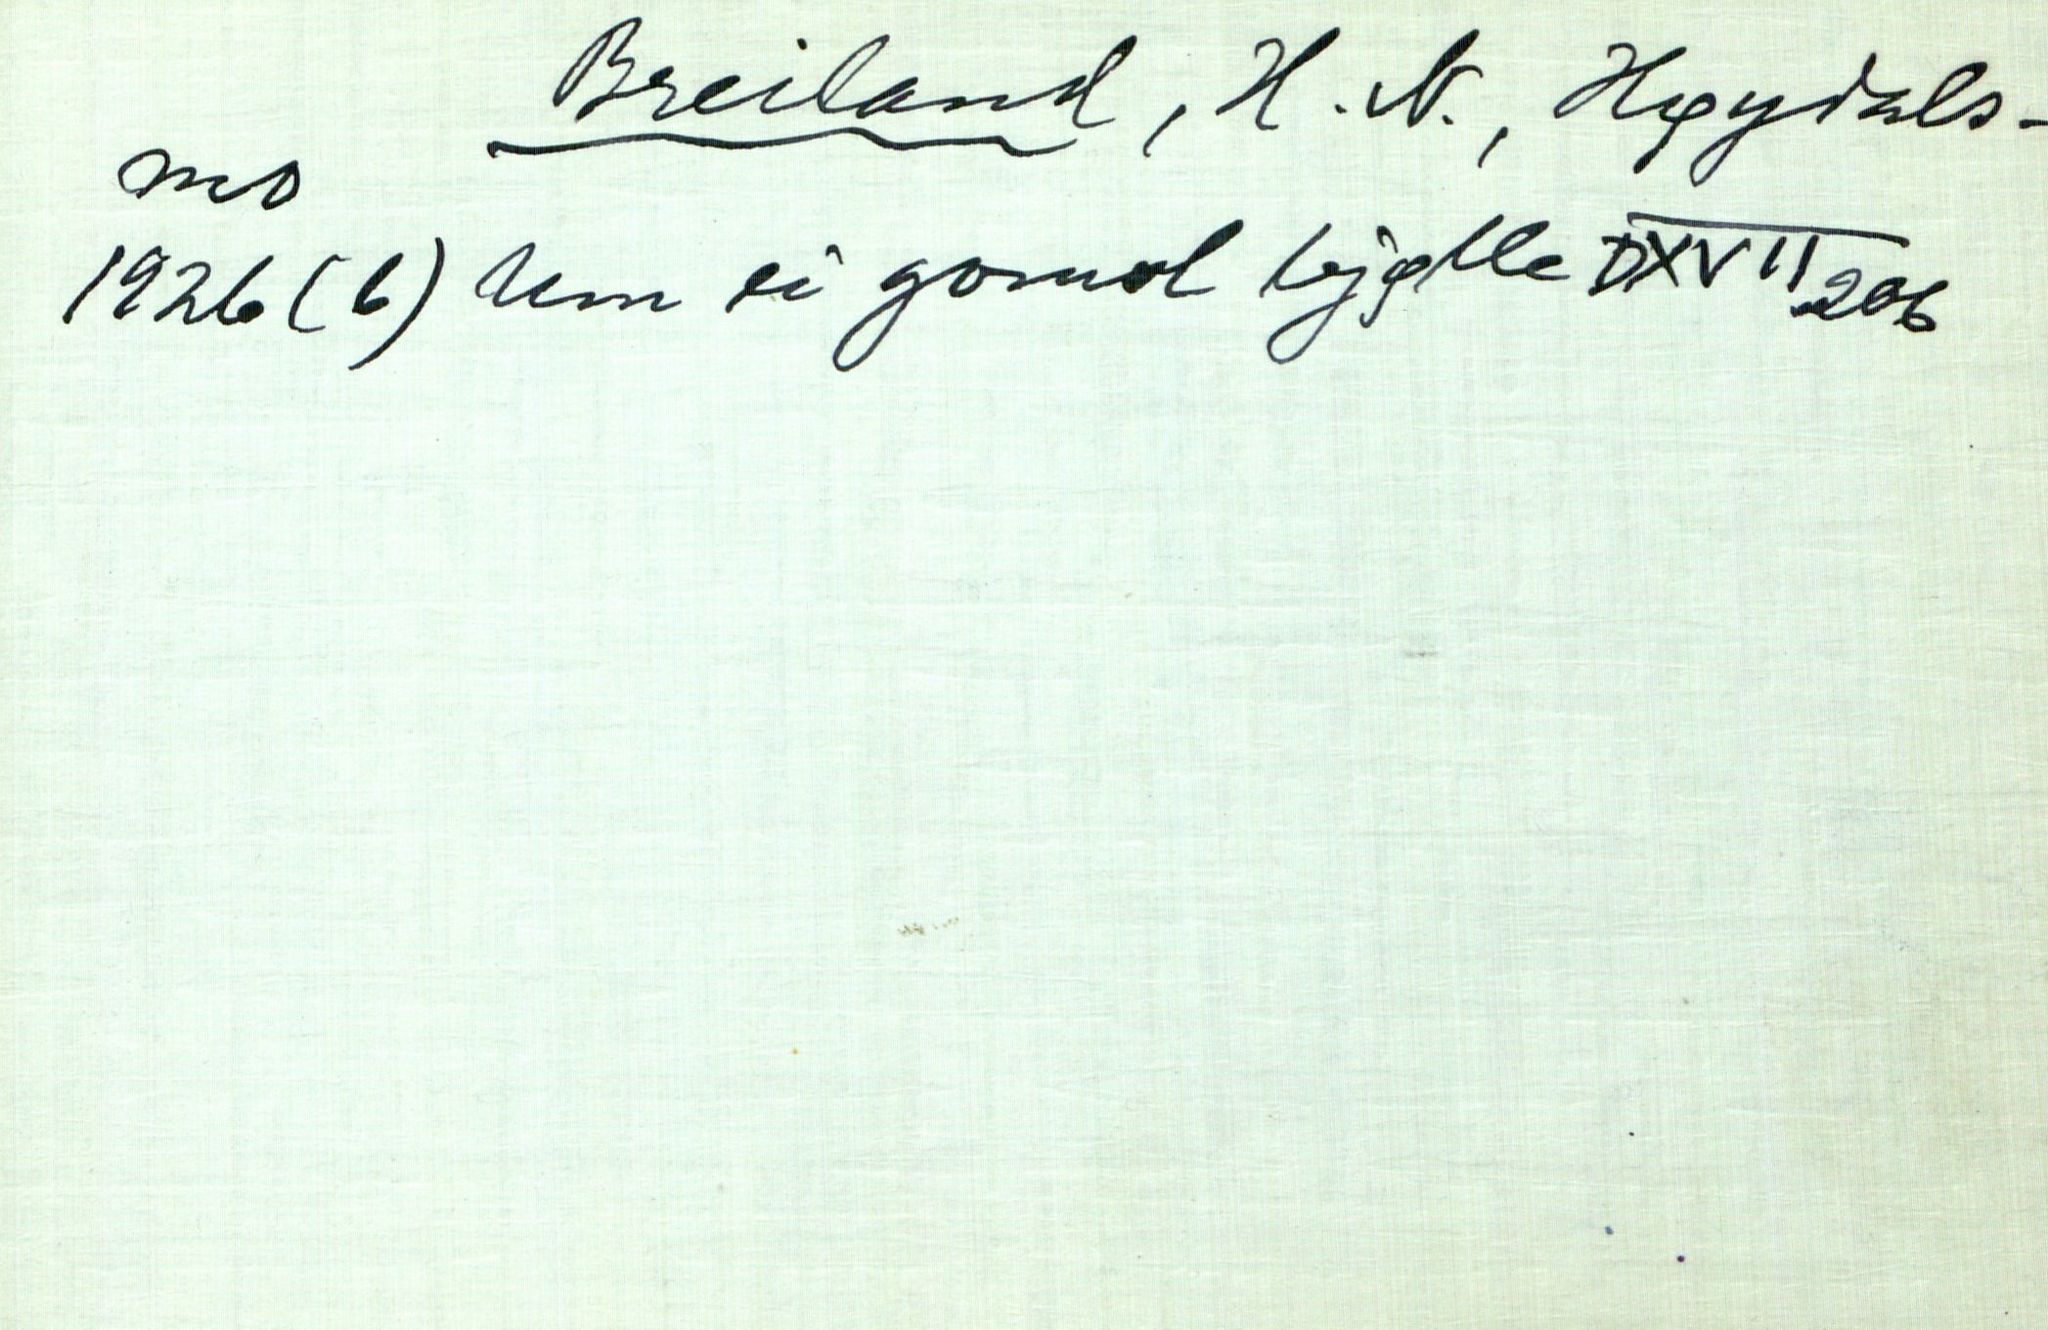 Breiland, H. N., Høydals-
mo
1926 (6) Um ei gomol bjølle DXVII 206